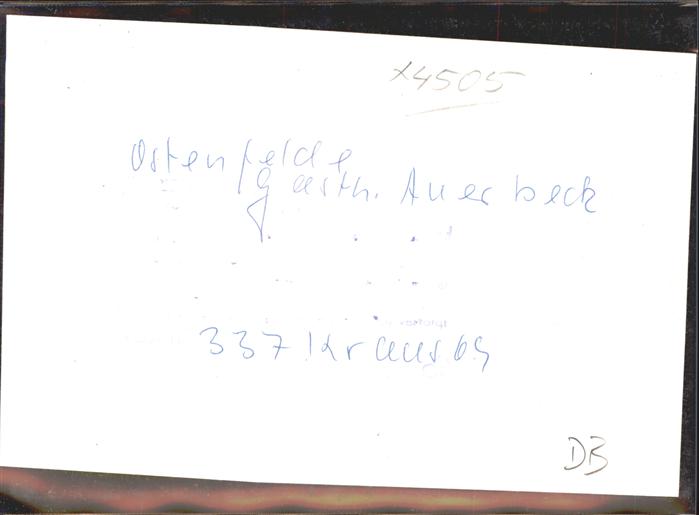 x4505
Ostenfelde
Gasth. Auerbeck
337 Kraus 69
DB